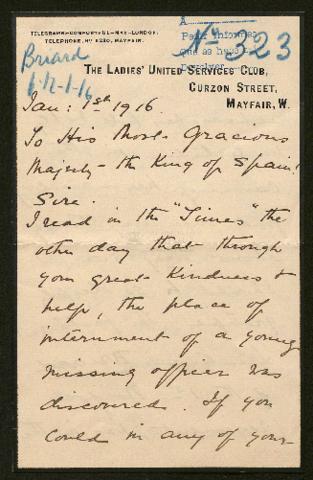 TELEGRAMS-COMFORTISI-MAY-LONDON.
TELEPHONE, No 8230, MAYFAIR.
A
Pedir informes
que se haga
devolver
Nº 323
Briard
THE LADIES' UNITED SERVICES CLUB,
CURZON STREET,
MAYFAIR, W.
Jan: 1st 1916.
To His Most Gracious
Majesty - the King of Spain!
Sire.
I read in the "Times" the
other day that through
your great kindness &
help, the place of
internment of a young
missing officer was
discovered. If you
could in any of your